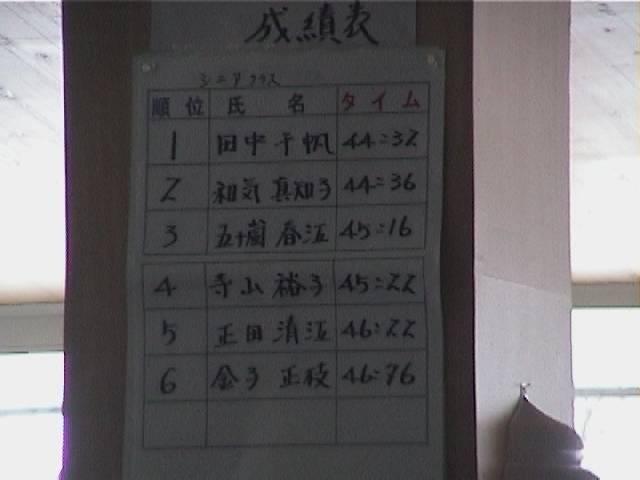 成績表
シニアクラス
順位 氏名 タイム
1 田中千帆 44:32
2 和気真知子 44:36
3 五十嵐春江 45:16
4 寺山裕子 45:22
5 正田清江 46:22
6 金子正枝 46:76